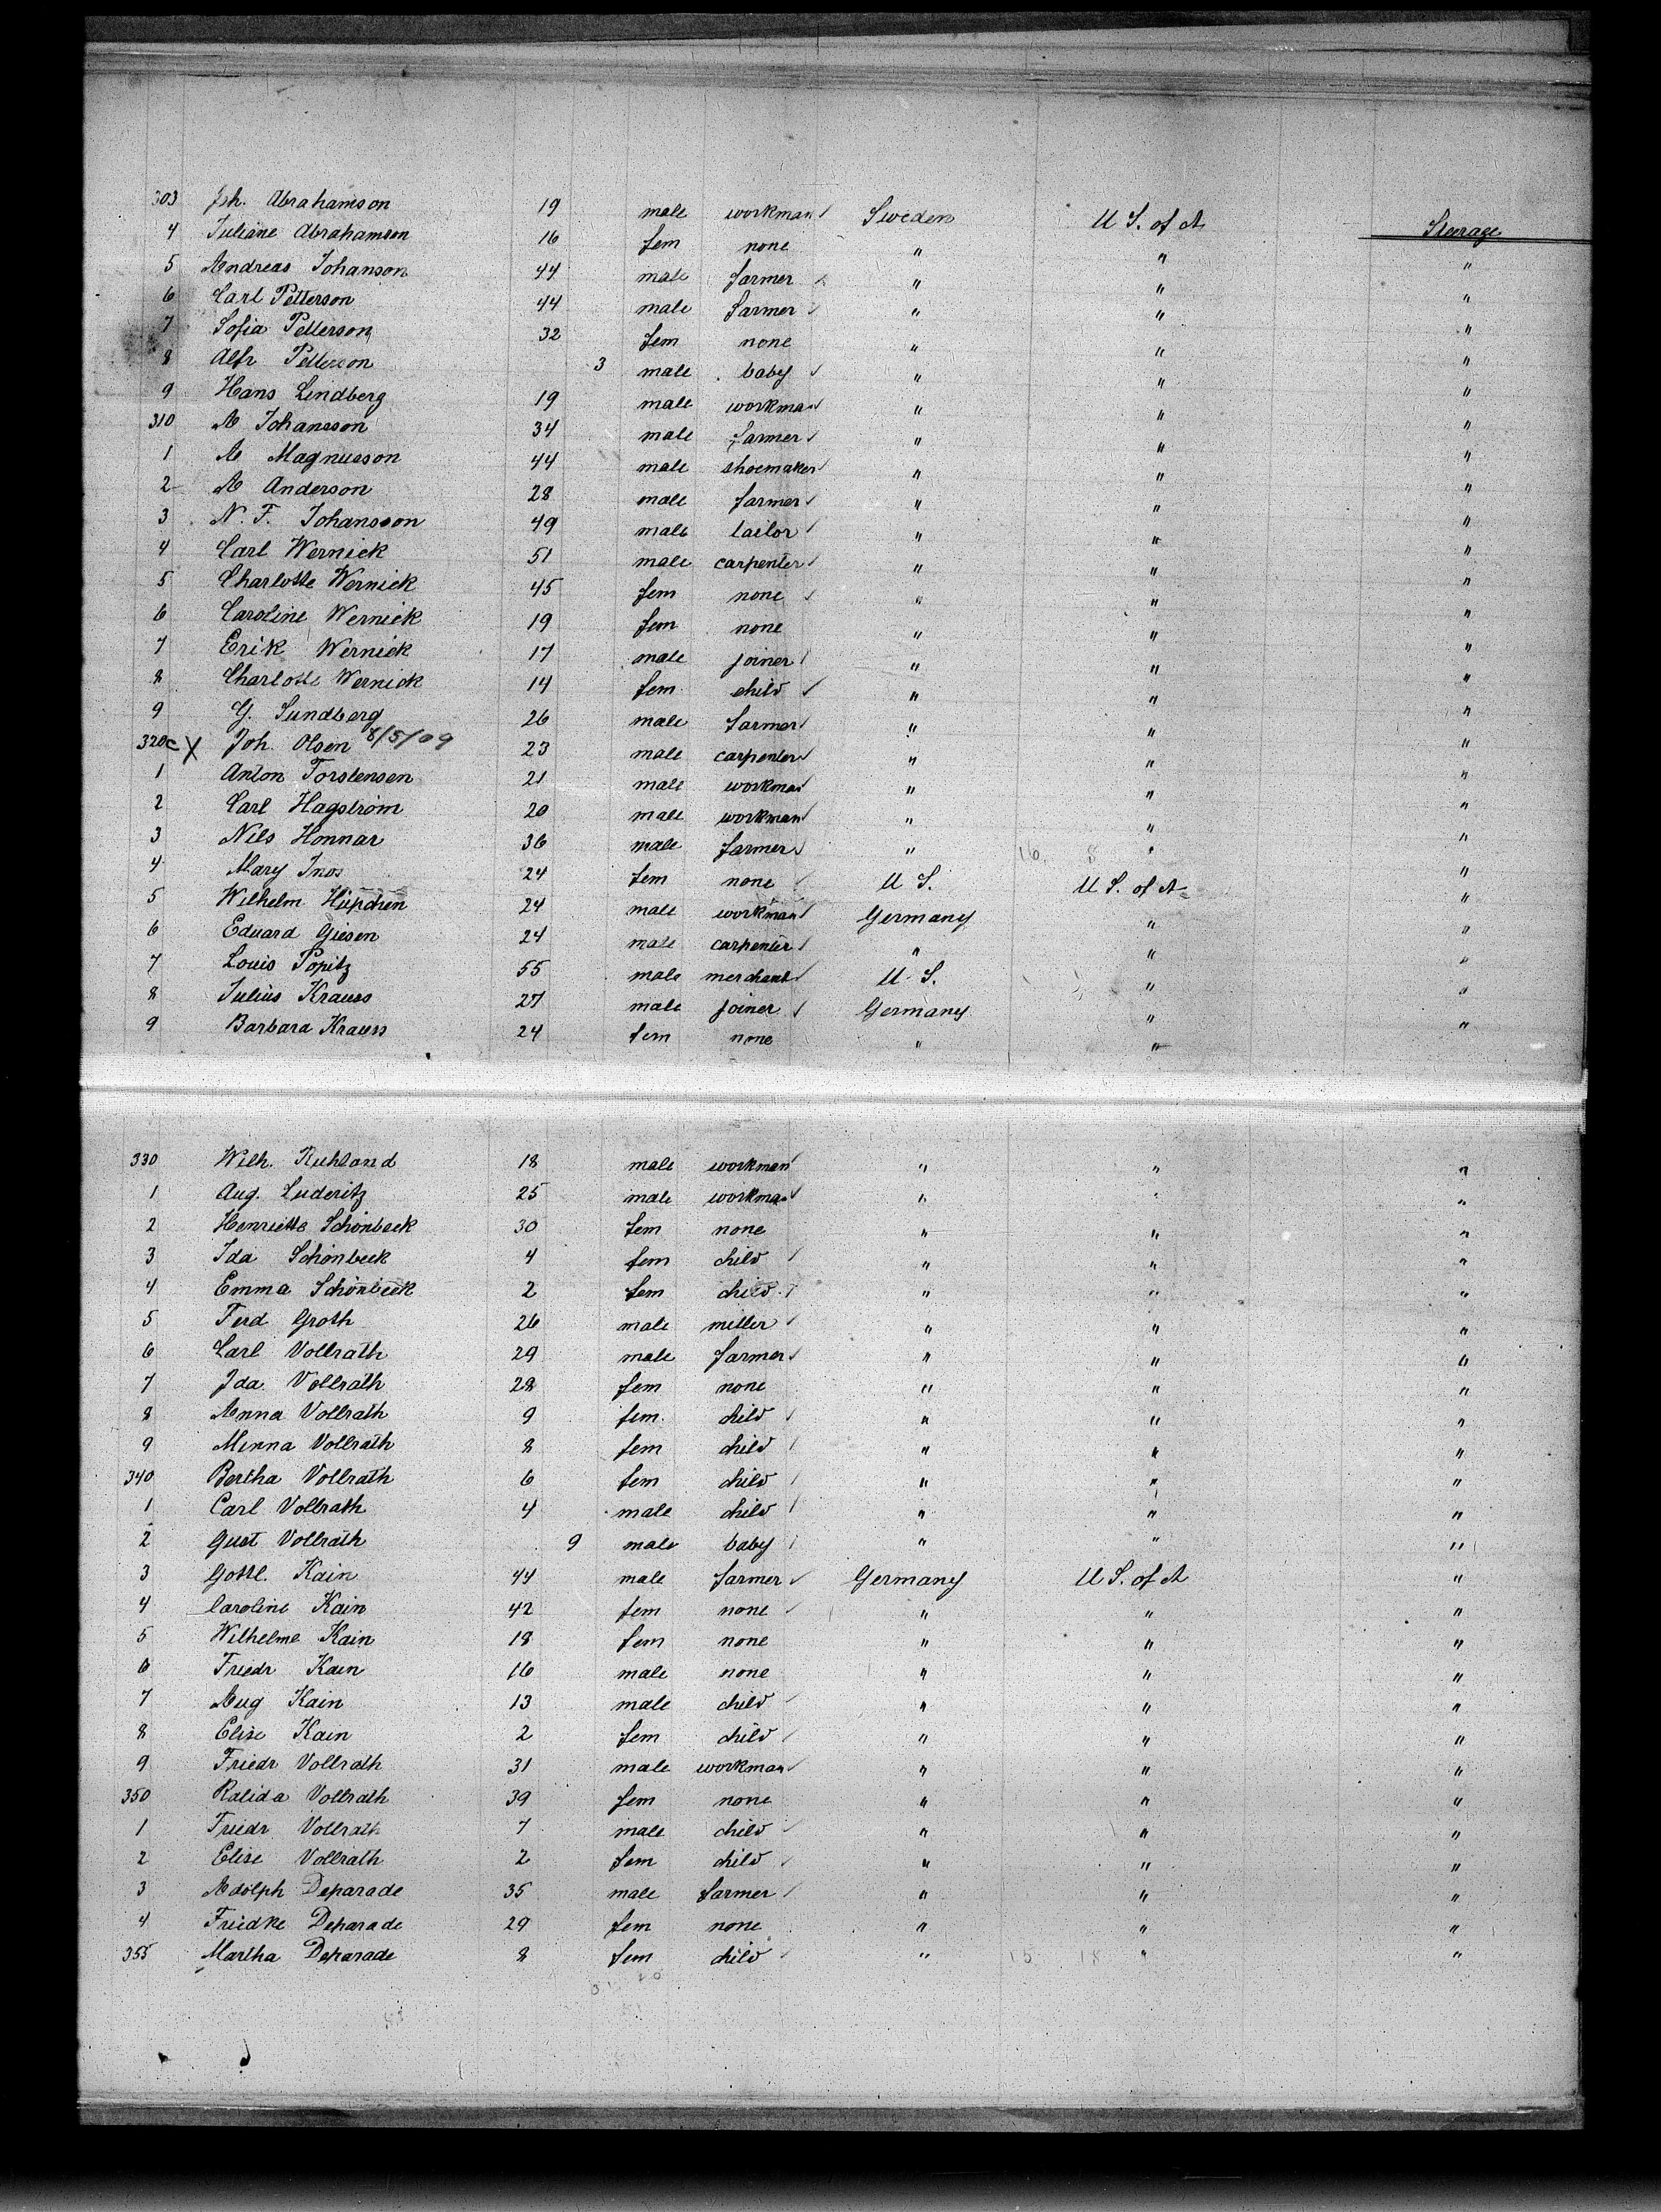 303 Joh. Abrahamson 19 male workman Sweden U S. of A Steerage
4 Juliane Abrahamson 16 fem none " " "
5 Andreas Johanson 44 male farmer " " "
6 Carl Petterson 44 male farmer " " "
7 Sofia Petterson 32 fem none " " "
8 Alfr Petterson 3 male baby " " "
9 Hans Lindberg 19 male workman " " "
310 A Johansson 34 male farmer " " "
1 A Magnusson 44 male shoemaker " " "
2 A Anderson 28 male farmer " " "
3 N. F. Johansson 49 male tailor " " "
4 Carl Wernick 51 male carpenter " " "
5 Charlotte Wernick 45 fem none " " "
6 Caroline Wernick 19 fem none " " "
7 Erik Wernick 17 male joiner " " "
8 Charlotte Wernick 14 fem child " " "
9 G. Sundberg 26 male farmer " " "
320 c X Joh. Olsen 8/5/09 23 male carpenter " " "
1 Anton Torstensen 21 male workman " " "
2 Carl Hagström 20 male workman " " "
3 Nils Honnar 36 male farmer " 16 8 " "
4 Mary Inos 24 fem none U S. U S. of A "
5 Wilhelm Hüpchen 24 male workman Germany " "
6 Eduard Giesen 24 male carpenter " " "
7 Louis Popitz 55 male merchant U. S. " "
8 Julius Krauss 27 male joiner Germany " "
9 Barbara Krauss 24 fem none " " "
330 Wilh. Ruhland 18 male workman " " "
1 Aug. Luderitz 25 male workman " " "
2 Henriette Schönbeck 30 fem none " " "
3 Ida Schönbeck 4 fem child " " "
4 Emma Schönbeck 2 fem child " " "
5 Ferd Groth 26 male miller " " "
6 Carl Vollrath 29 male farmer " " "
7 Ida Vollrath 28 fem none " " "
8 Anna Vollrath 9 fem. child " " "
9 Minna Vollrath 8 fem child " " "
340 Bertha Vollrath 6 fem child " " "
1 Carl Vollrath 4 male child " " "
2 Gust Vollrath 9 male baby " " "
3 Gottl. Kain 44 male farmer Germany U S. of A "
4 Caroline Kain 42 fem none " " "
5 Wilhelme Kain 18 fem none " " "
6 Friedr Kain 16 male none " " "
7 Aug Kain 13 male child " " "
8 Elise Kain 2 fem child " " "
9 Friedr Vollrath 31 male workman " " "
350 Ralida Vollrath 39 fem none " " "
1 Friedr Vollrath 7 male child " " "
2 Elise Vollrath 2 fem child " " "
3 Adolph Deparade 35 male farmer " " "
4 Friedke Deparade 29 fem none " " "
355 Martha Deparade 8 fem child " 15 18 " "